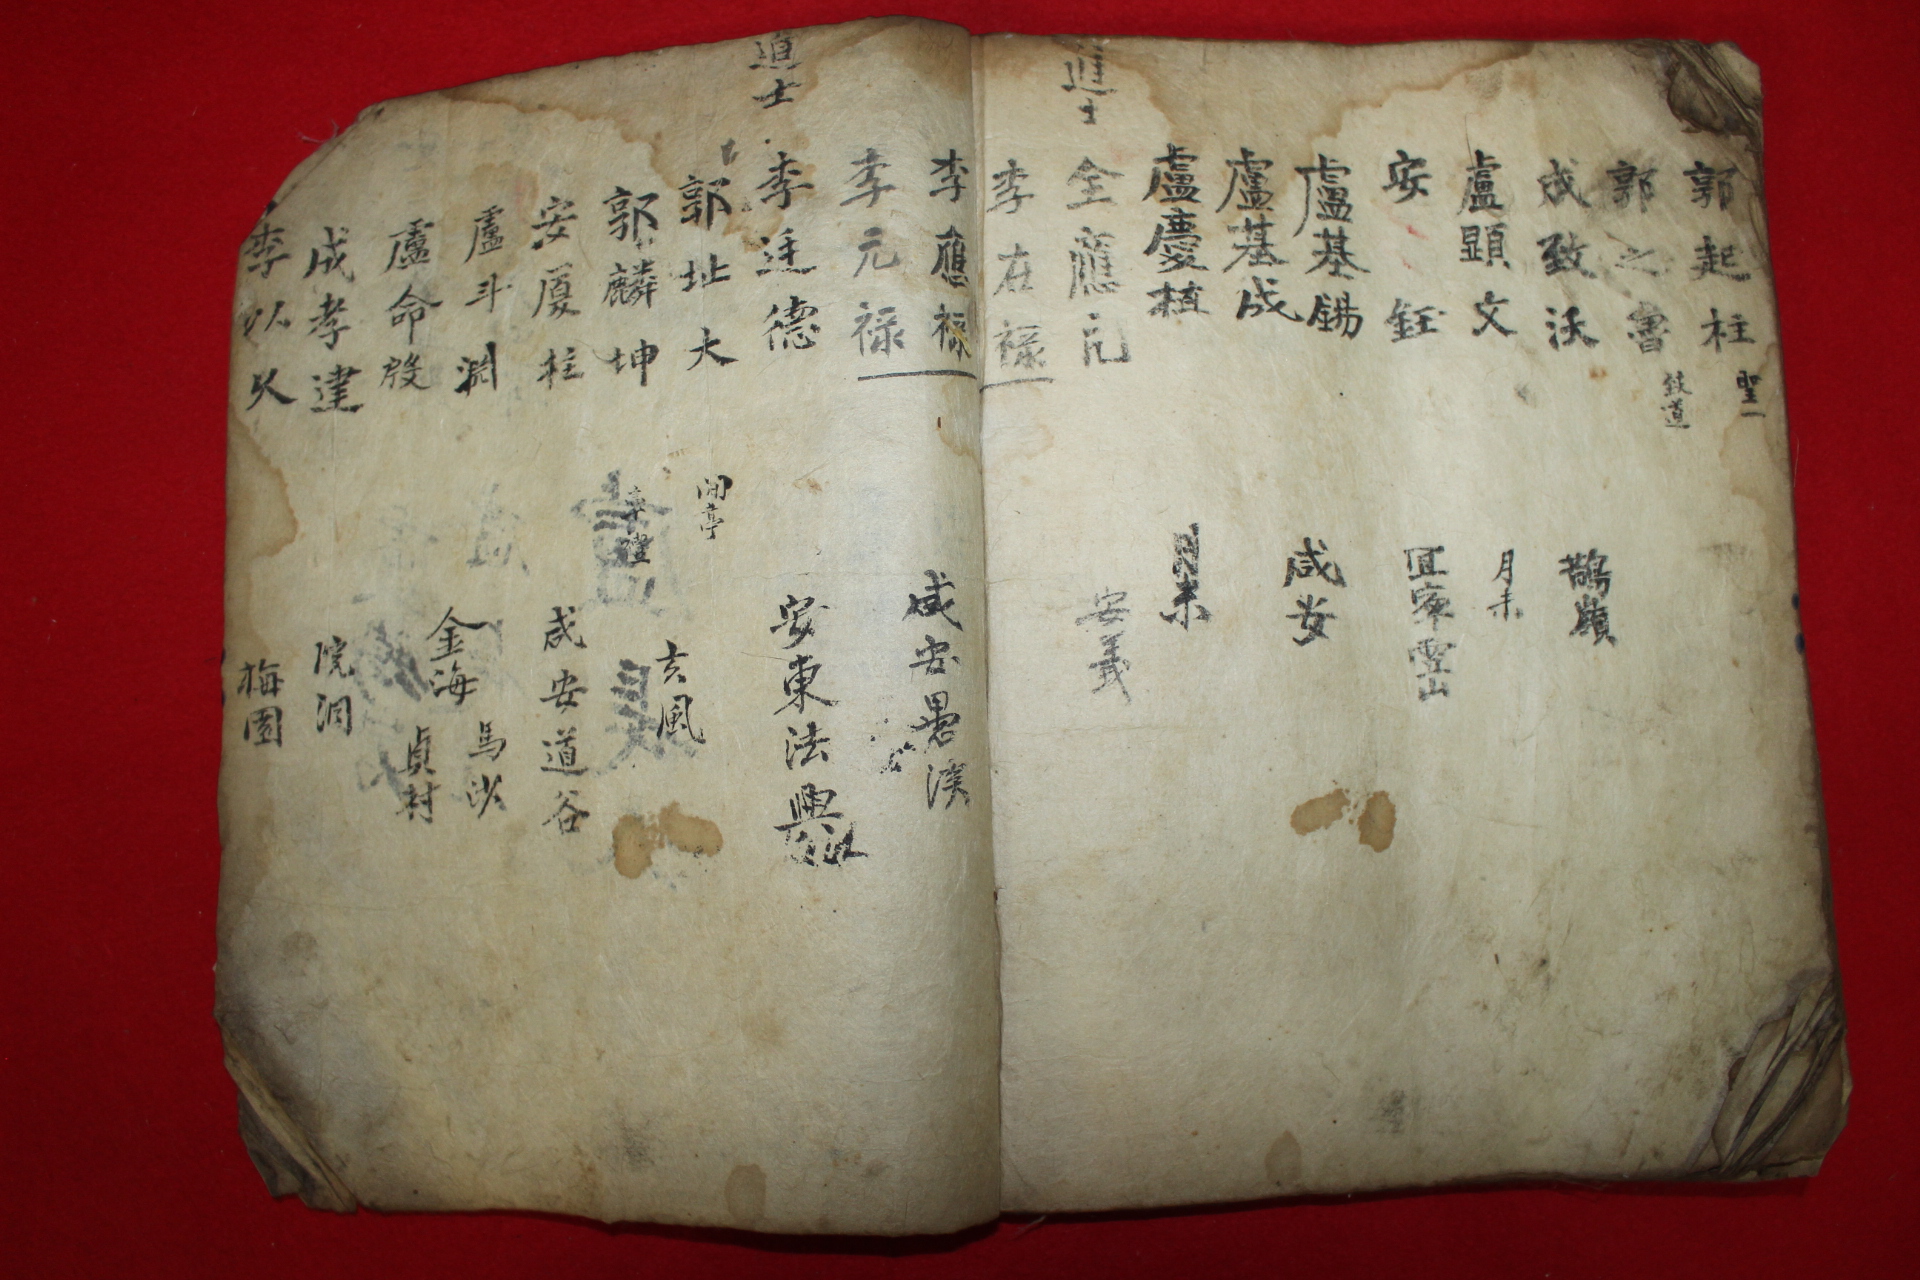 郭起柱 聖一
郭之魯 致道
成致沃 鵲嶺
盧顯文 月末
安鈺 宜寧雪山
盧基錫 咸安
盧基成
盧慶植 月末
進士 全應元 安義
李在祿
李應祿 咸安
李元祿
進士 李廷德 安東法興
郭址大 玄風
郭麟坤
安厦柱 咸安道谷
盧斗淵 金海馬沙
盧命殷 貞村
成孝建 院洞
李以久 梅園